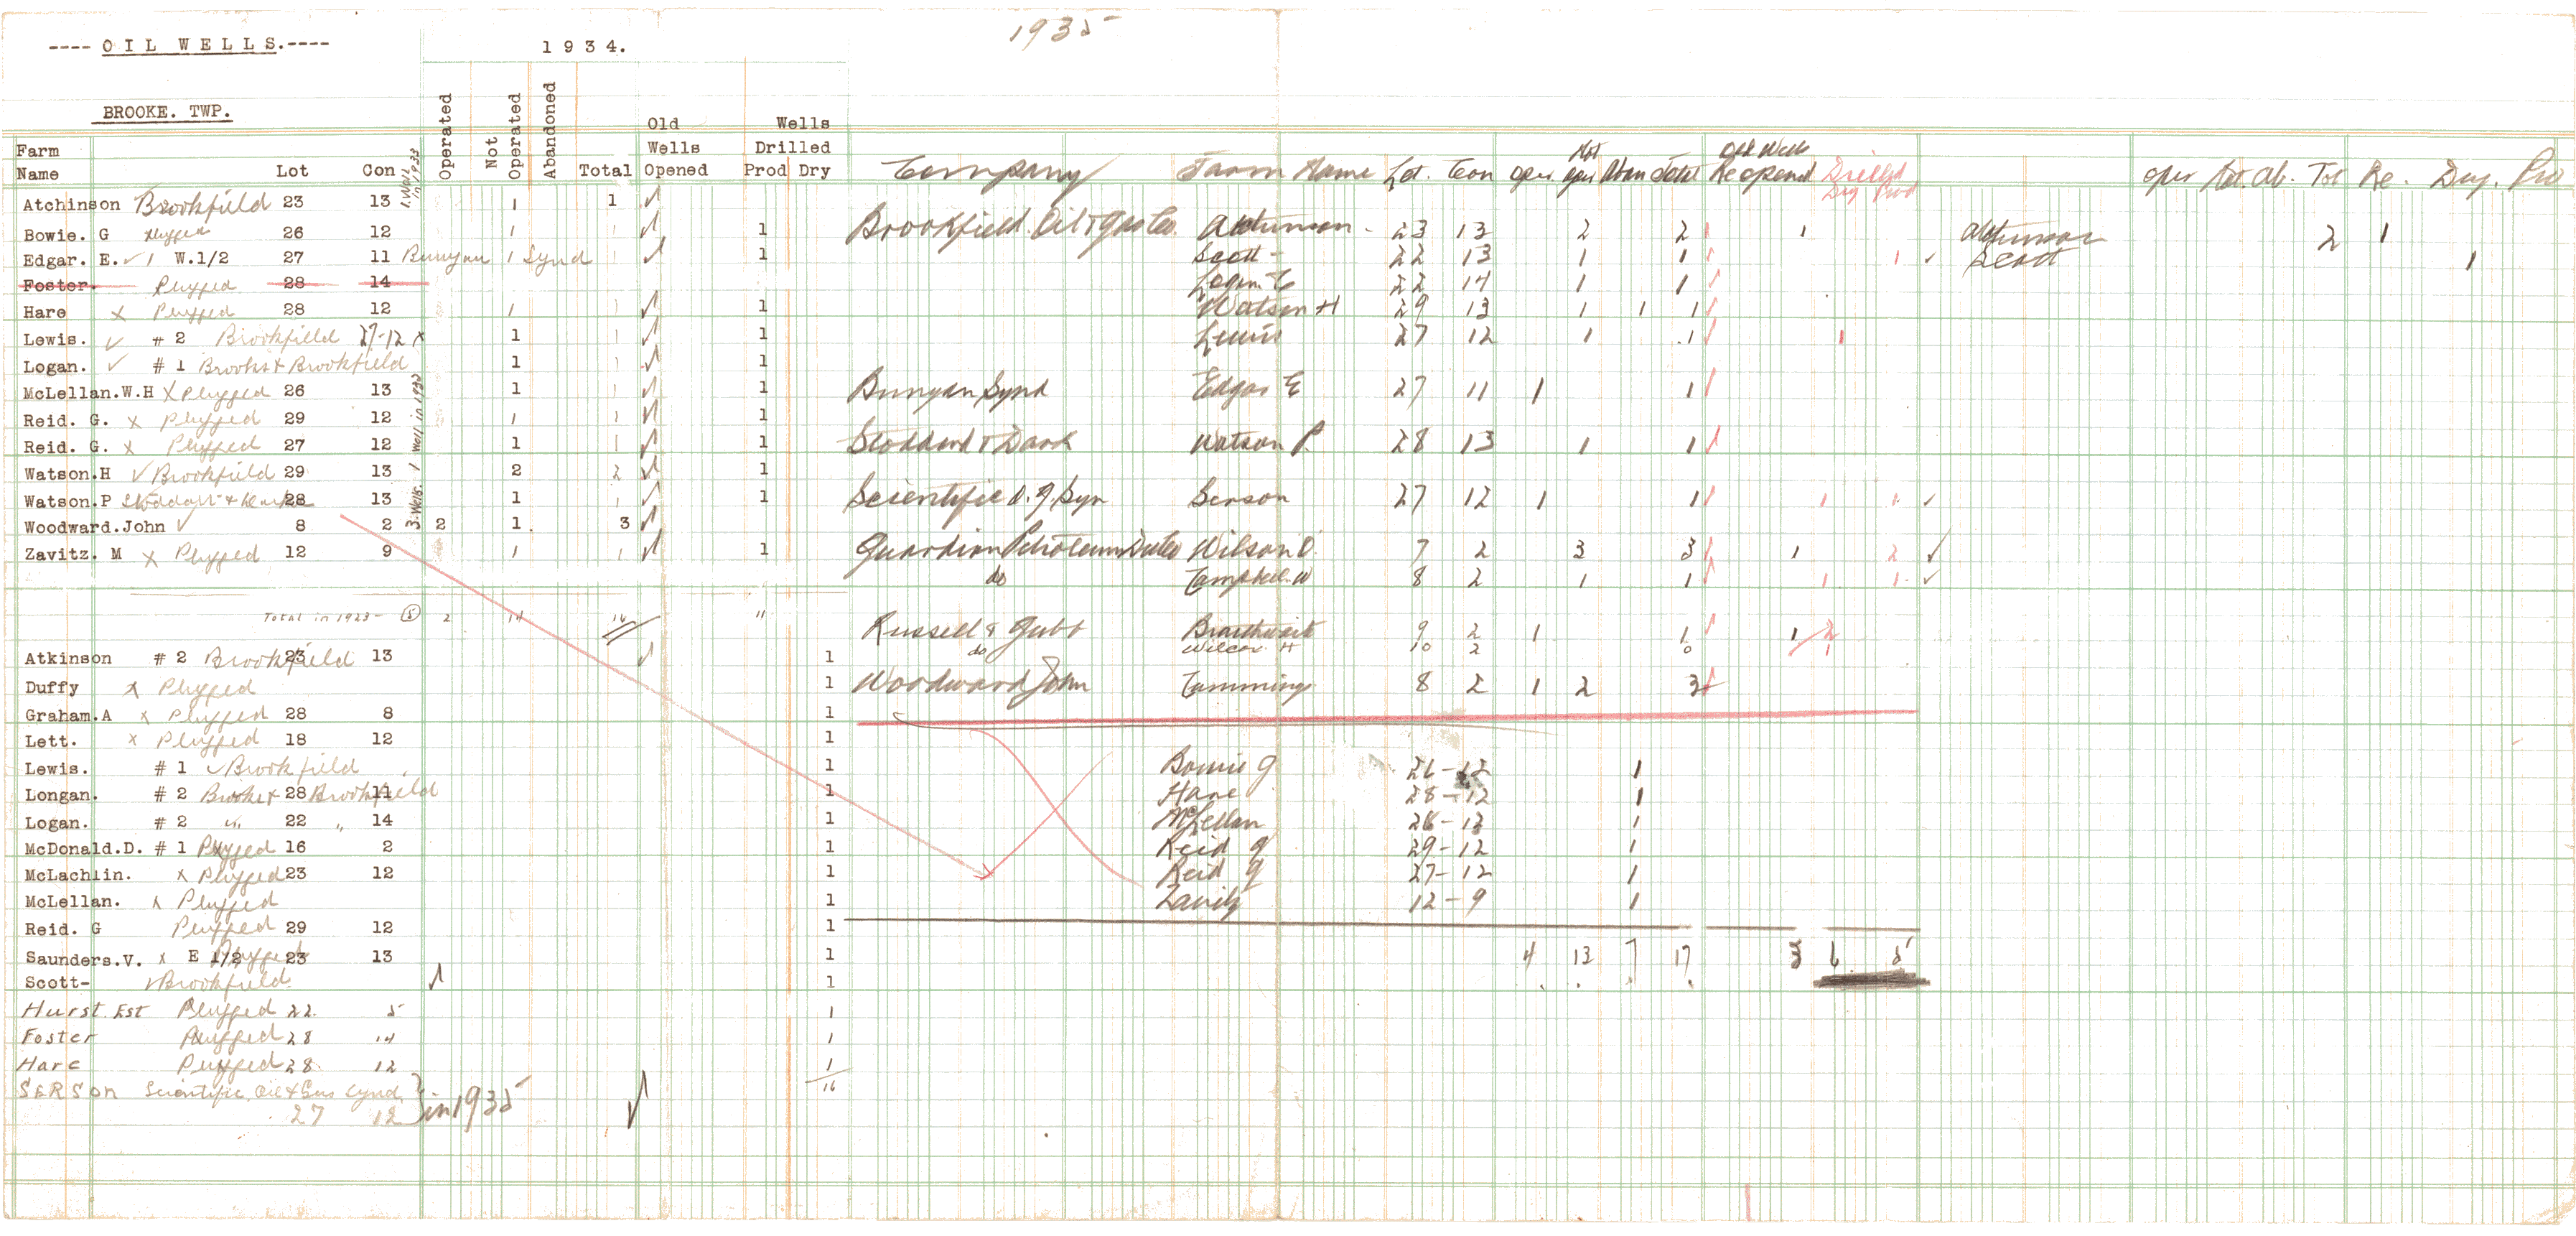 ---- OIL WELLS.---- 1934. 1935
BROOKE. TWP.
Farm Name Lot Con 1.Well in 1933 Operated Not Operated Abandoned Total Old Wells Opened Wells Drilled Prod Dry
Atchinson Brookfield 23 13 1 1 ✓
Bowie. G Plugged 26 12 1 ✓ 1
Edgar. E. ✓ 1 W.1/2 27 11 Bunyan 1 Synd 1 ✓ 1
Foster. Plugged 28 14
Hare x Plugged 28 12 1 1 ✓ 1
Lewis. ✓ # 2 Brookfield 27-12 x 1 1 ✓ 1
Logan. ✓ # 1 Brooks & Brookfield 1 1 ✓ 1
McLellan.W.H X Plugged 26 13 1 1 ✓ 1
Reid. G. x Plugged 29 12 1 1 ✓ 1
Reid. G. x Plugged 27 12 1 1 ✓ 1
Watson.H ✓ Brookfield 29 13 2 2 ✓ 1
Watson.P Stoddart & 28 13 1 1 ✓ 1
Woodward.John ✓ 8 2 2 1 3 ✓
Zavitz. M x Plugged 12 9 1 1 ✓ 1
3.Wells. 1 Well in 1932
Total in 1923- 5 2 14 16 "
Atkinson # 2 Brookfield 23 13 ✓ 1
Duffy x Plugged 1
Graham.A x Plugged 28 8 1
Lett. x Plugged 18 12 1
Lewis. # 1 ✓ Brookfield 1
Longan. # 2 Brooks & 28 Brookfield 11 1
Logan. # 2 " 22 " 14 1
McDonald.D. # 1 Plugged 16 2 1
McLachlin. x Plugged 23 12 1
McLellan. x Plugged 1
Reid. G Plugged 29 12 1
Saunders.V. x E 1/2 Plugged 23 13 1
Scott- ✓ Brookfield ✓ 1
Hurst Est Plugged 22. 5 1
Foster Plugged 28 14 1
Hare Plugged 28. 12 1
16
SERSON Scientific Oil & Gas Synd. } in 1935 ✓
27 12
Company Farm Name Lot. Con Oper Not Oper Aban Total Old Wells Reopened Drilled Dry Prod
Brookfield Oil & Gas Co. Atchinson - 23 13 2 2 1
Scott - 22 13 1 1 1 ✓
Logan 22 14 1 1
Watson H 29 13 1 1 1
Lewis 27 12 1 1 1
Bunyan Synd Edgar E 27 11 1 1
Stoddard & Watson P. 28 13 1 1
Scientific O. G. Syn Serson 27 12 1 1 1 1 ✓
Guardian Petroleum Wilson 7 2 3 3 1 2 ✓
do Campbell W 8 2 1 1 1 1 ✓
Russell & Gubb Braithwait 9 2 1 1 1 2
do Wilcox H 10 2 0 1
Woodward John Cummings 8 2 1 2 3
Bowie G 26-12 1
Hare 28-12 1
McLellan 26-12 1
Reid G 29-12 1
Reid G 27-12 1
Zavitz 12-9 1
4 13 7 17 3 6 5
Oper Not. Ab. Tot Re. Dry. Pro
Atkinson 2 1
Scott 1